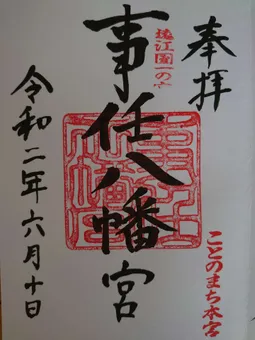 奉拝
遠江國一の宮
事任八幡宮
ことのまち本宮
令和二年六月十日